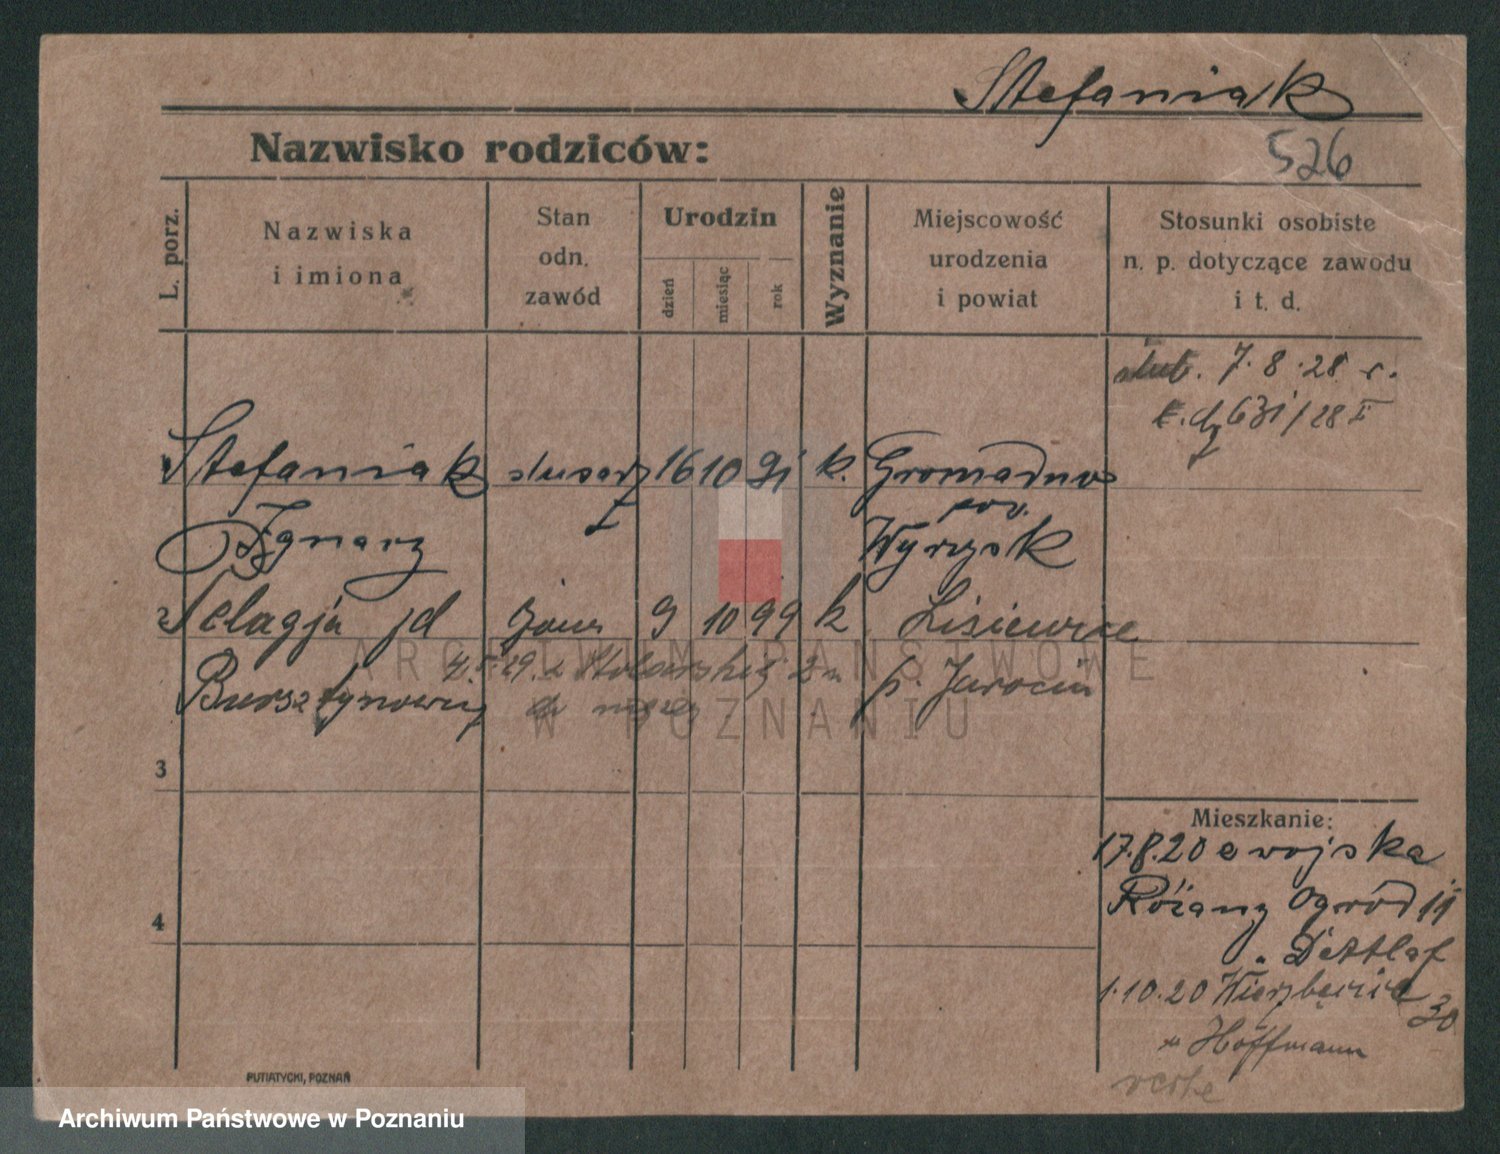 Stefaniak
Nazwisko rodziców:
526
L. porz.
Nazwiska
i imiona
Stan
odn.
zawód
Urodzin
dzień
miesiąc
rok
Wyznanie
Miejscowość
urodzenia
i powiat
Stosunki osobiste
n. p. dotyczące zawodu
i t. d.
7.8.28 r.
Stefaniak ślusarz 16 10 91 k. Gromadno
pow.
Ignacy Wyrzysk
2 Pelagja żona 9 10 99 k Lisiewice
Bursztynowicz p. Jarocin
3
4
Mieszkanie:
17.8.20 z wojska
Różany Ogród 11
Dettlaf
1.10.20 Wierzbięcice 30
u Hoffmann
verte
PUTIATYCKI, POZNAŃ
ARCHIWUM PAŃSTWOWE
W POZNANIU
Archiwum Państwowe w Poznaniu